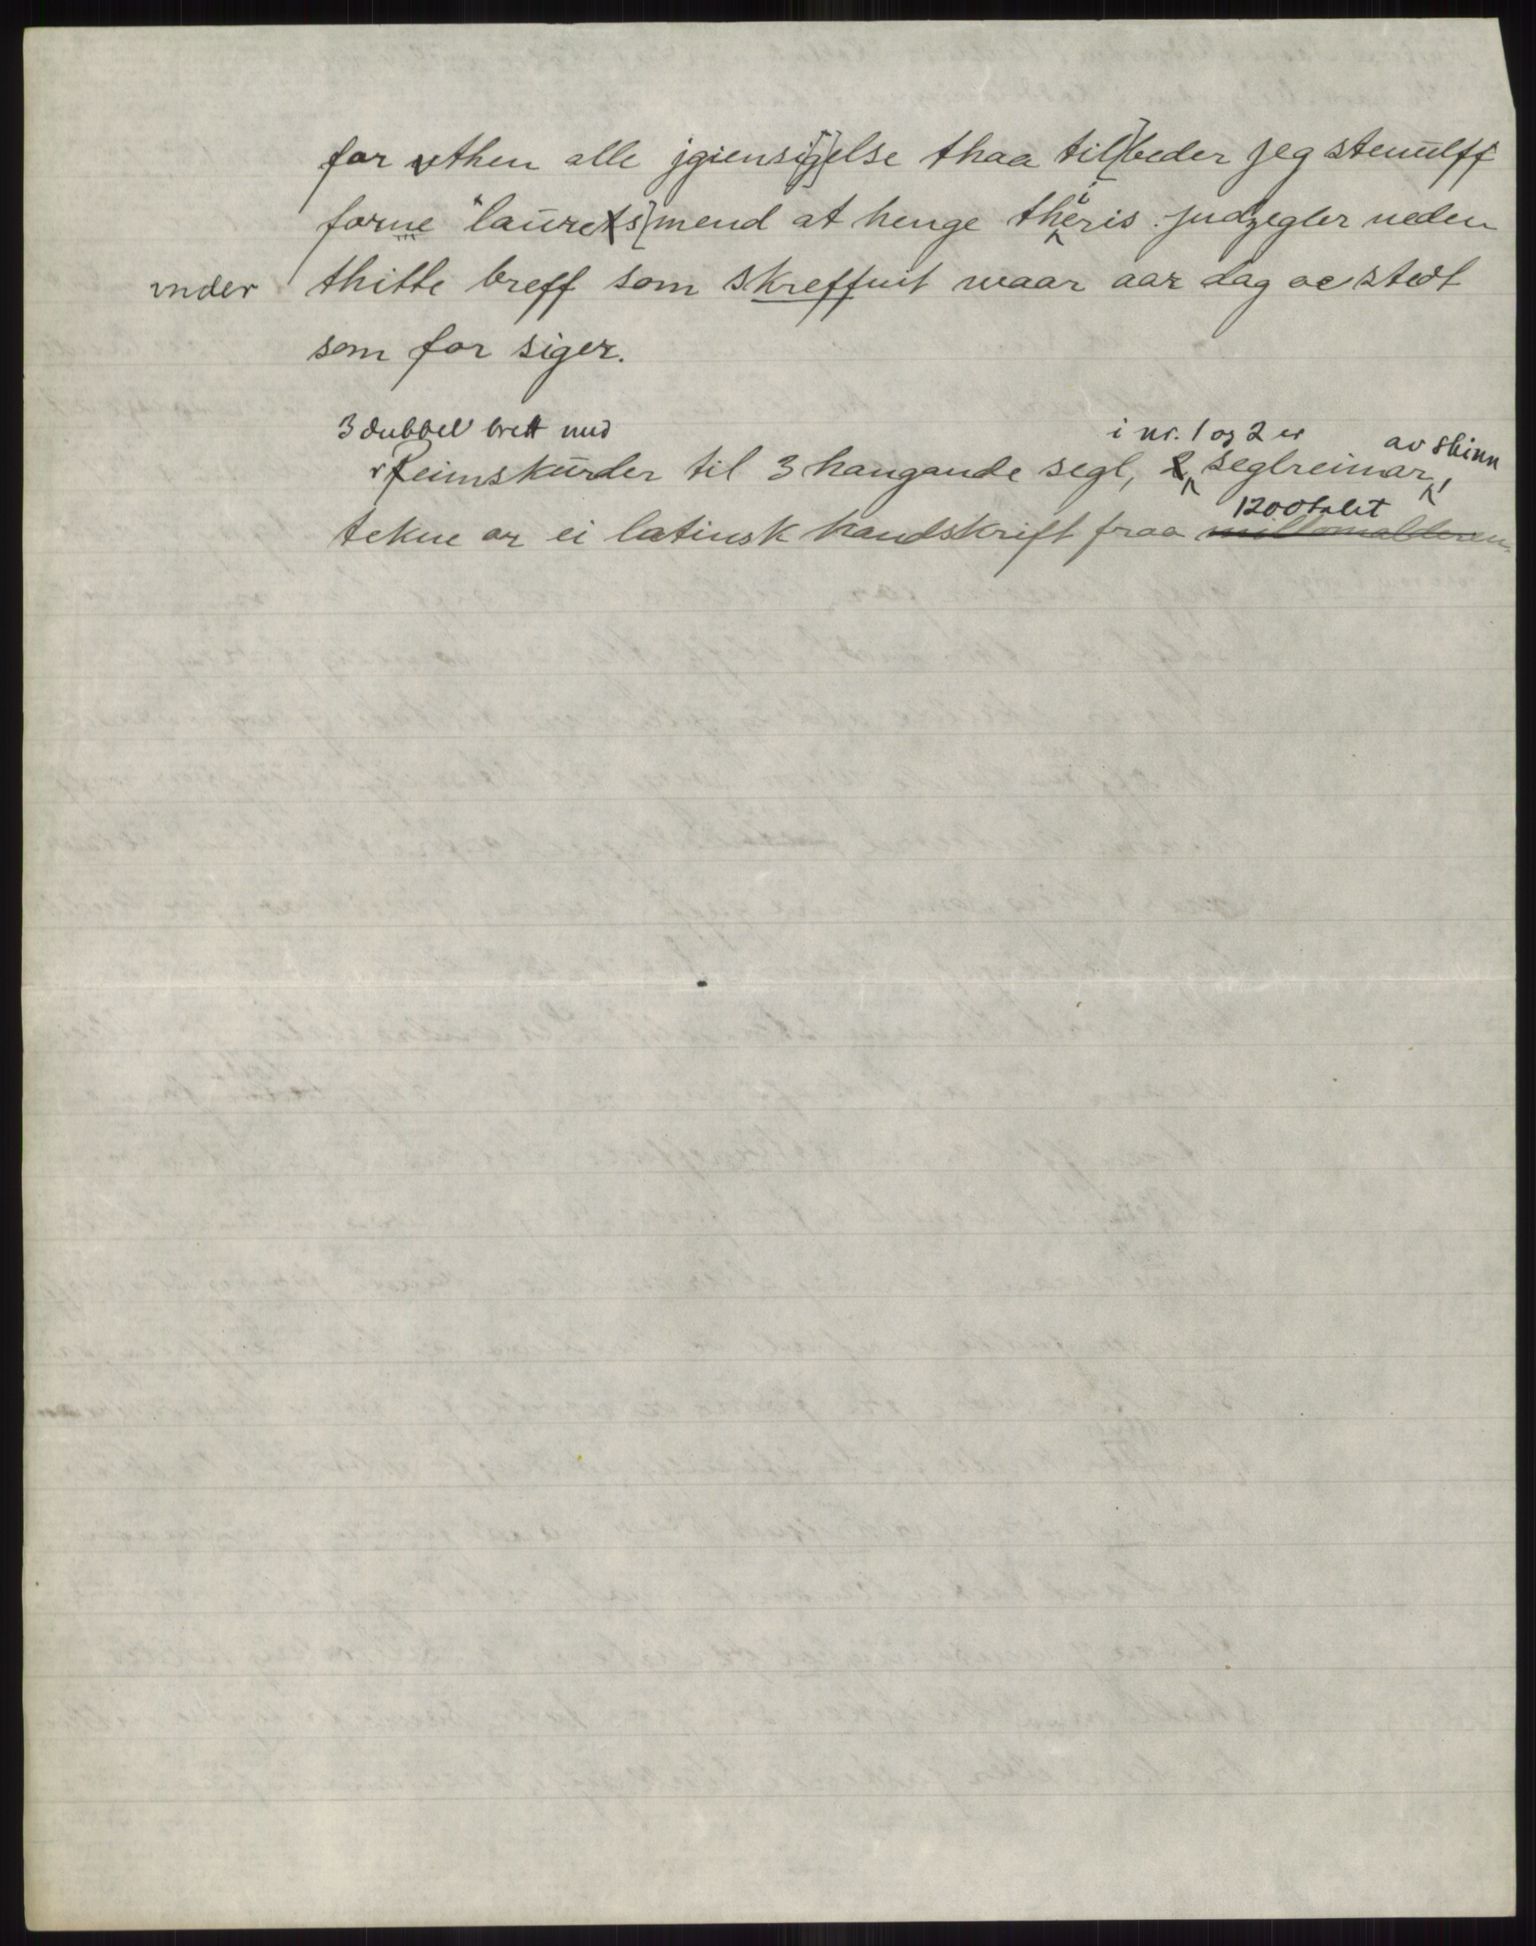 for vthen alle jgiensi[g]else thaa til[beder jeg stenulff
forne laurets]mend at henge theris judzegler neden
vnder thitte breff som skreffuit waar aar dag oc stedt
som for siger.
3 dubbel brett med i nr. 1 og 2 er av skinn
reimskurder til 3 hangande segl, 2 seglreimar,
1200talet
tekne or ei latinsk handskrift fraa millomalderen